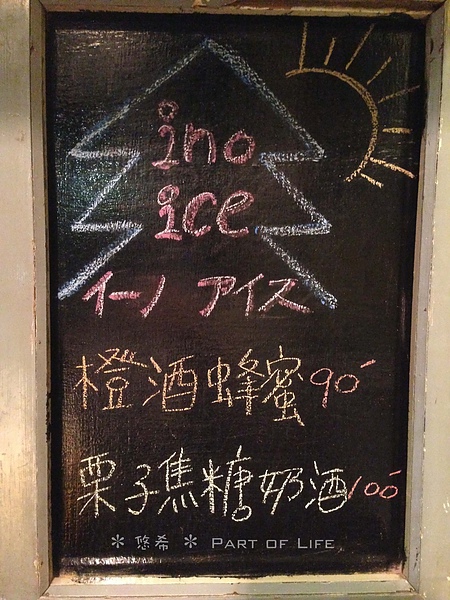 ino
ice
イーノ アイス
橙酒蜂蜜90
栗子焦糖奶酒100
＊悠希＊ PART OF LIFE